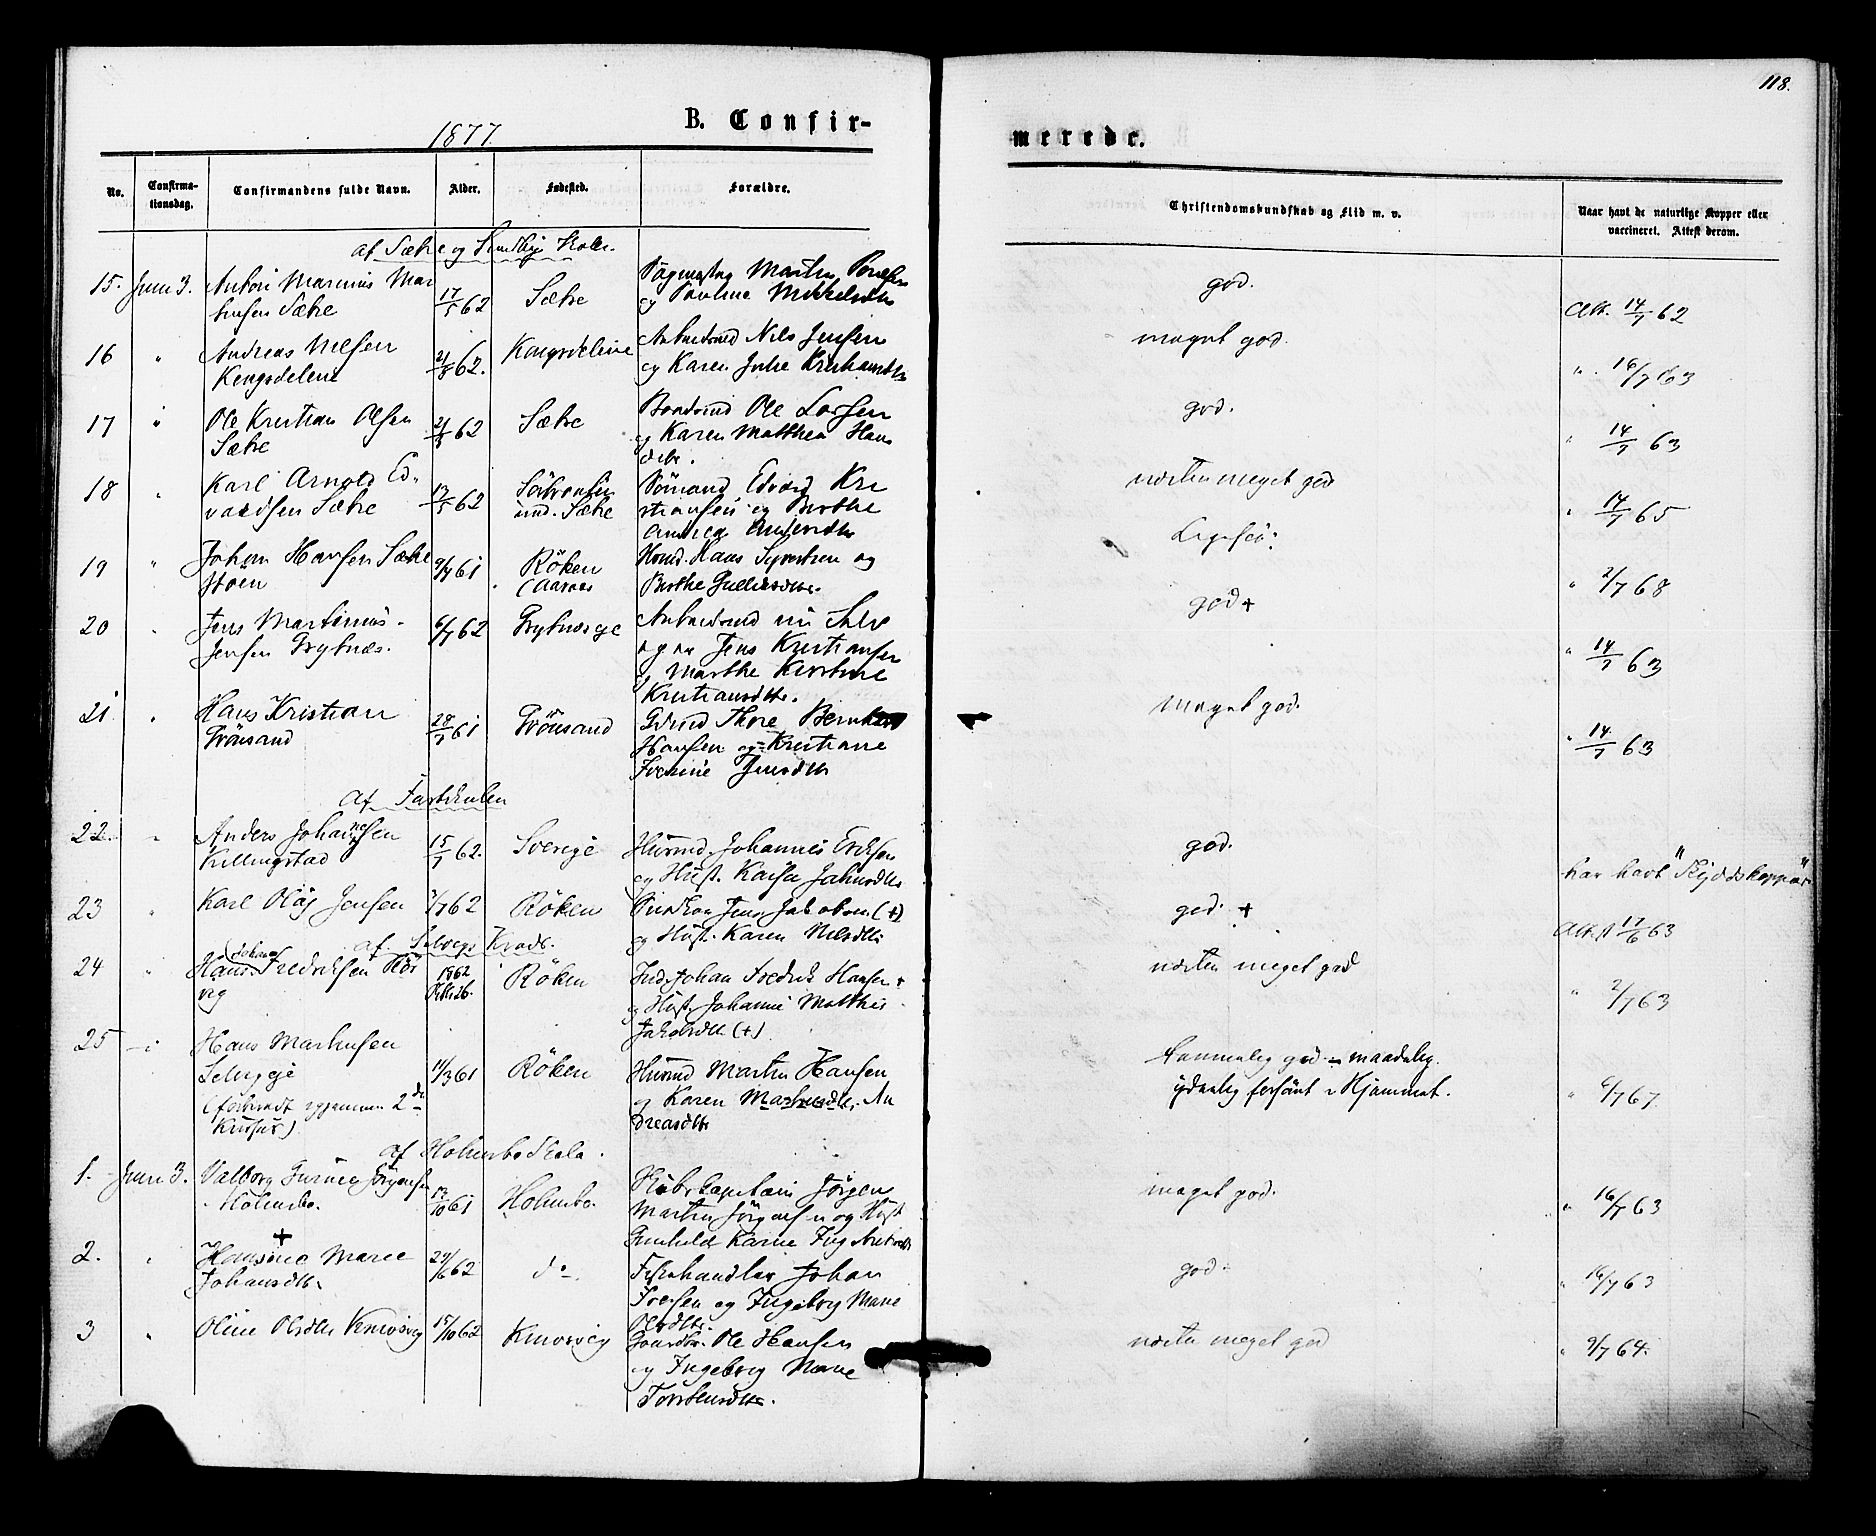 118.
1877.
B. Confir-
merede.
No.
Confirma-
tionsdag.
Confirmandens fulde Navn.
Alder.
Fødested.
Forældre.
Christendomskundskab og Flid m. v.
Naar havt de naturlige Kopper eller
vaccineret. Attest derom.
af Sætre og
15. Juni 3. Anton Marinius Mar
tinsen Sætre
17/5 62
Sætre
Martin
og Pauline Mikkelsdtr
god.
Att. 14/7 62
16 " Andreas Nilsen
Kongsdelene
21/8 62.
Kongsdelene
Arbeidsmd Nils Jensen
og Karen Julie Kristiansdtr
meget god.
" 16/7 63
17 " Ole Kristian Olsen
Sætre
62
Sætre
Ole Larsen
og Karen Matthea Hans
dtr.
god.
" 14/7 63
18 " Karl Arnold Ed-
vardsen Sætre
17/5 62
und. Sætre
Sömand Edvard Kri
stiansen og Berthe
Andrea
næsten meget god
" 14/7 65
19 " Johan Hansen Sætre
9/4 61
Röken
(Aaraas
Husmd. Hans Syvertsen og
Berthe Gulliksdtr.
Ligesaa:
" 2/7 68
20 " Jens Martinius
Jensen Grytnæs.
6/7 62
Grytnæseje
Arbeidsmd
Jens Kristiansen
og Marthe Kirstine
Kristiansdtr.
god +
" 14/7 63
21 " Hans Kristian
Grönsand
28/7 61
Grönsand
Gbrmd Thore Bernhard
Hansen og Kristiane
Jensdtr
meget god.
" 14/7 63
af Fastskolen
22. " Anders Johannesen
Killingstad
15/1 62.
Sverige
Husmd. Johannes Eriksen
og Hust. Kaisa
god.
har havt "Skyddskoppor"
23 " Karl Olaf Jensen
7/7 62
Röken
Jens Jakobsen (+)
og Hust. Karen Nilsdtr
god. +
Attest 17/6 63
af Selvigs Kreds.
24 " Hans Johan Fredriksen
vig
1862
Oktbr 26.
Röken
Johan Fredrik Hansen +
og Hust. Johanne Matthea
Jakobsdtr. (+)
næsten meget god
" 2/7 63
25 " Hans Martinsen
Selvigeje
(forberedt igjennem 2de
Kurser)
11/3 61
Röken
Husmd Martin Hansen
og Karen Martinsdtr. An
dreasdtr
temmelig god - maadelig.
ydmelig forsömt i Hjemmet.
" 6/7 67.
af Holmsbo Skole.
1. Juni 3. Valborg Jörgensen
Holmsbo.
17/10 61
Holmsbo.
Skibskaptein Jörgen
Martin Jörgensen og Hust
Gunhild Karine
meget god.
" 16/7 63
2. " + Hansine Marie
Johansdtr.
29/6 62
do
Fiskehandler Johan
Iversen og Ingeborg Marie
Olsdtr.
god.
" 16/7 63
3 " Oline Olsdtr Knivsvig
15/10 62
Knivsvig
Ole Hansen
og Ingeborg Marie
Torstensdtr.
næsten meget god
" 9/7 64.